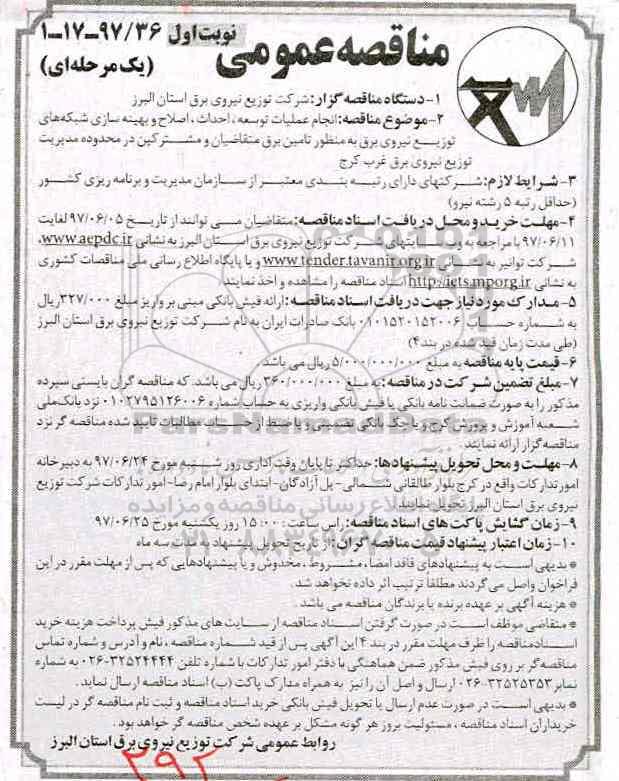 مناقصه عمومی
نوبت اول ۹۷/۳۶-۱۷-۱
(یک مرحله‌ای)
۱-دستگاه مناقصه گزار: شرکت توزیع نیروی برق استان البرز
۲-موضوع مناقصه: انجام عملیات توسعه، احداث، اصلاح و بهینه سازی شبکه‌های
توزیع نیروی برق به منظور تامین برق متقاضیان و مشترکین در محدوده مدیریت
توزیع نیروی برق غرب کرج
۳-شرایط لازم: شرکتهای دارای رتبه بندی معتبر از سازمان مدیریت و برنامه ریزی کشور
(حداقل رتبه ۵ رشته نیرو)
۴-مهلت خرید و محل دریافت اسناد مناقصه: متقاضیان می توانند از تاریخ ۹۷/۰۶/۰۵ لغایت
۹۷/۰۶/۱۱ با مراجعه به وب سایتهای شرکت توزیع نیروی برق استان البرز به نشانی www.aepdc.ir،
شرکت توانیر به نشانی www.tender.tavanir.org.ir و یا پایگاه اطلاع رسانی ملی مناقصات کشوری
به نشانی http://iets.mporg.ir اسناد مناقصه را مشاهده و اخذ نمایند.
۵-مدارک مورد نیاز جهت دریافت اسناد مناقصه: ارائه فیش بانکی مبنی بر واریز مبلغ ۳۲۷/۰۰۰ ریال
به شماره حساب ۰۱۰۱۵۲۰۱۵۲۰۰۶ بانک صادرات ایران به نام شرکت توزیع نیروی برق استان البرز
(طی مدت زمان قید شده در بند ۴)
۶-قیمت پایه مناقصه به مبلغ ۵/۰۰۰/۰۰۰/۰۰۰ ریال می باشد.
۷-مبلغ تضمین شرکت در مناقصه: به مبلغ ۳۶۰/۰۰۰/۰۰۰ ریال می باشد. که مناقصه گران بایستی سپرده
مذکور را به صورت ضمانت نامه بانکی یا فیش بانکی واریزی به حساب شماره ۰۱۰۲۷۹۵۱۲۶۰۰۶ نزد بانک ملی
شعبه آموزش و پرورش کرج و یا چک بانکی تضمینی و یا ضبط از حساب مطالبات تایید شده مناقصه گر نزد
مناقصه گزار ارائه نمایند.
۸-مهلت و محل تحویل پیشنهادها: حداکثر تا پایان وقت اداری روز شنبه مورخ ۹۷/۰۶/۲۴ به دبیرخانه
امور تدارکات واقع در کرج بلوار طالقانی شمالی-پل آزادگان-ابتدای بلوار امام رضا-امور تدارکات شرکت توزیع
نیروی برق استان البرز تحویل نمایند.
۹-زمان گشایش پاکت های اسناد مناقصه: راس ساعت ۱۵:۰۰ روز یکشنبه مورخ ۹۷/۰۶/۲۵
۱۰-زمان اعتبار پیشنهاد قیمت مناقصه گران: از تاریخ تحویل پیشنهاد به مدت سه ماه
* بدیهی است به پیشنهادهای فاقد امضاء، مشروط، مخدوش و یا پیشنهادهایی که پس از مهلت مقرر در این
فراخوان واصل می گردند مطلقا ترتیب اثر داده نخواهد شد.
* هزینه آگهی بر عهده برنده یا برندگان مناقصه می باشد.
* متقاضی موظف است در صورت گرفتن اسناد مناقصه از سایت های مذکور فیش پرداخت هزینه خرید
اسناد مناقصه را ظرف مهلت مقرر در بند ۴ این آگهی پس از قید شماره مناقصه، نام و آدرس و شماره تماس
مناقصه گر بر روی فیش مذکور ضمن هماهنگی با دفتر امور تدارکات با شماره تلفن ۳۲۵۲۴۴۴۴-۰۲۶ به شماره
نمابر ۳۲۵۲۵۳۵۳-۰۲۶ ارسال و اصل آن را نیز به همراه مدارک پاکت (ب) اسناد مناقصه ارسال نماید.
* بدیهی است در صورت عدم ارسال یا تحویل فیش بانکی خرید اسناد مناقصه و ثبت نام مناقصه گر در لیست
خریداران اسناد مناقصه، مسئولیت بروز هر گونه مشکل بر عهده شخص مناقصه گر خواهد بود.
روابط عمومی شرکت توزیع نیروی برق استان البرز
۲۹۲